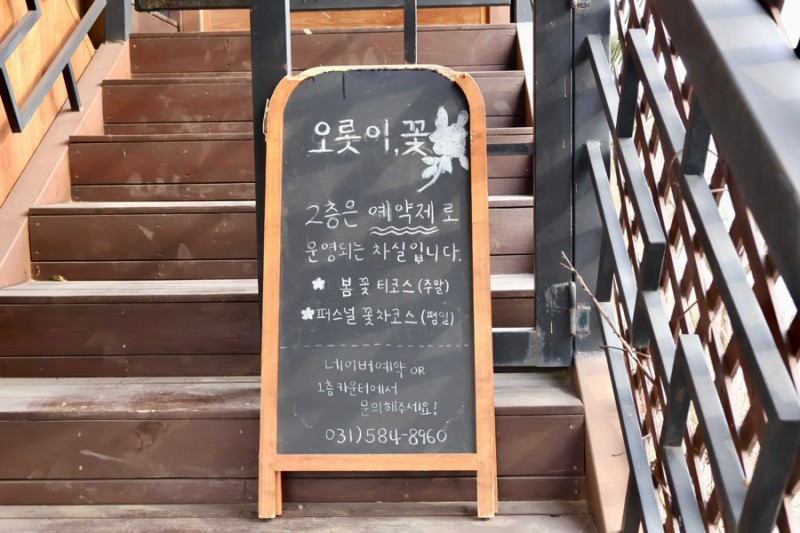 오롯이, 꽃
2층은 예약제로
운영되는 차실입니다.
봄 꽃 티코스 (주말)
퍼스널 꽃차코스 (평일)
네이버예약 OR
1층 카운터에서
문의해주세요!
031) 584-8960